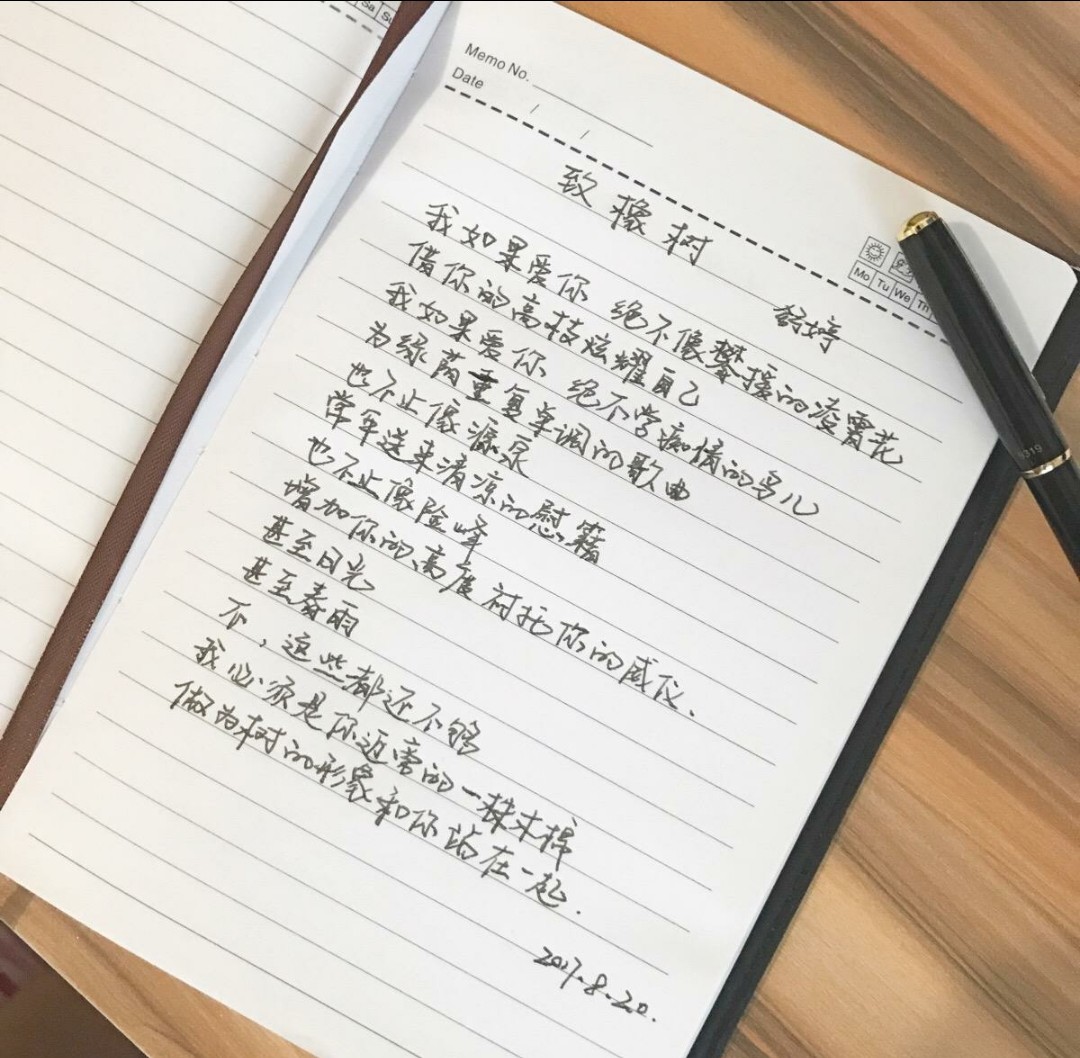 Sa
Memo No.
Date / /
Mo Tu We Th
致橡树
舒婷
我如果爱你 绝不像攀援的凌霄花
借你的高枝炫耀自己
我如果爱你 绝不学痴情的鸟儿
为绿荫重复单调的歌曲
也不止像源泉
常年送来清凉的慰籍
也不止像险峰
增加你的高度 衬托你的威仪.
甚至日光
甚至春雨
不，这些都还不够
我必须是你近旁的一株木棉
做为树的形象和你站在一起.
2017.8.20.